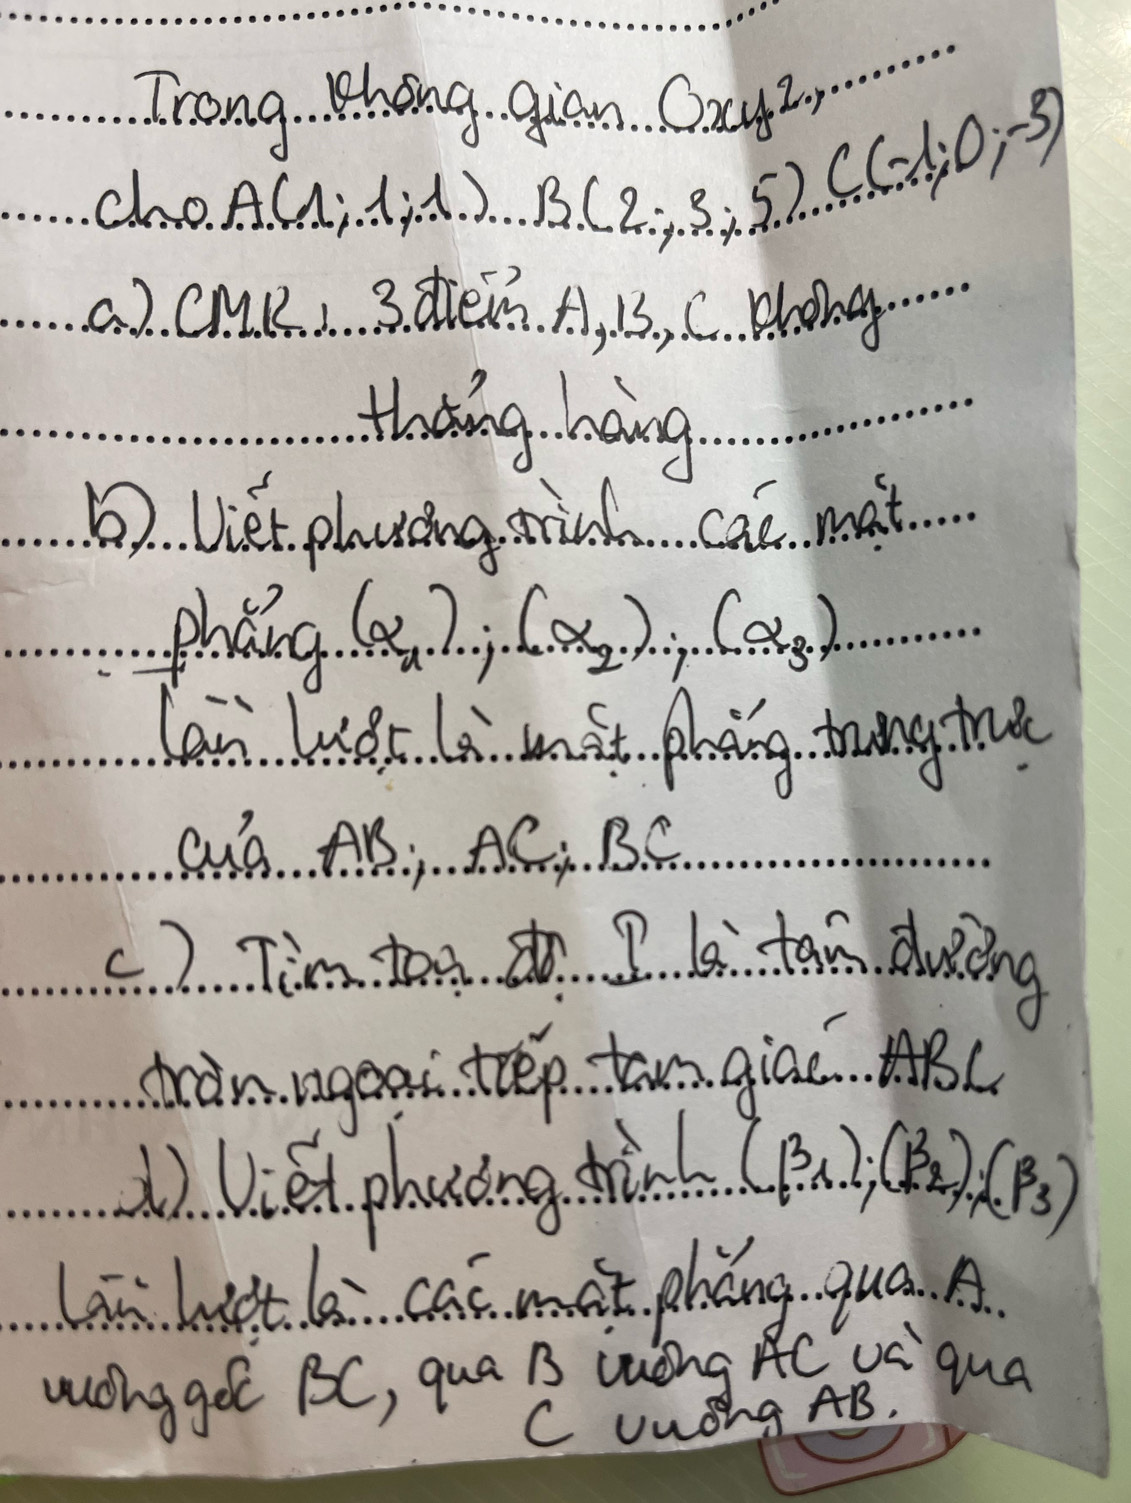 Trong không gian Oxyz,
cho A(1;1;1) B(2;3;5) C(-1;0;-3)
a) CMR, 3 điểm A, B, C không
thẳng hàng
b) Viết phương trình các mặt
phẳng (α1); (α2); (α3)
lần lượt là mặt phẳng trung trực
của AB; AC; BC
c) Tìm toạ độ I là tâm đường
tròn ngoại tiếp tam giác ABC
d) Viết phương trình (β1);(β2);(β3)
lần lượt là các mặt phẳng qua A
vuông góc BC, qua B vuông AC và qua
C vuông AB.